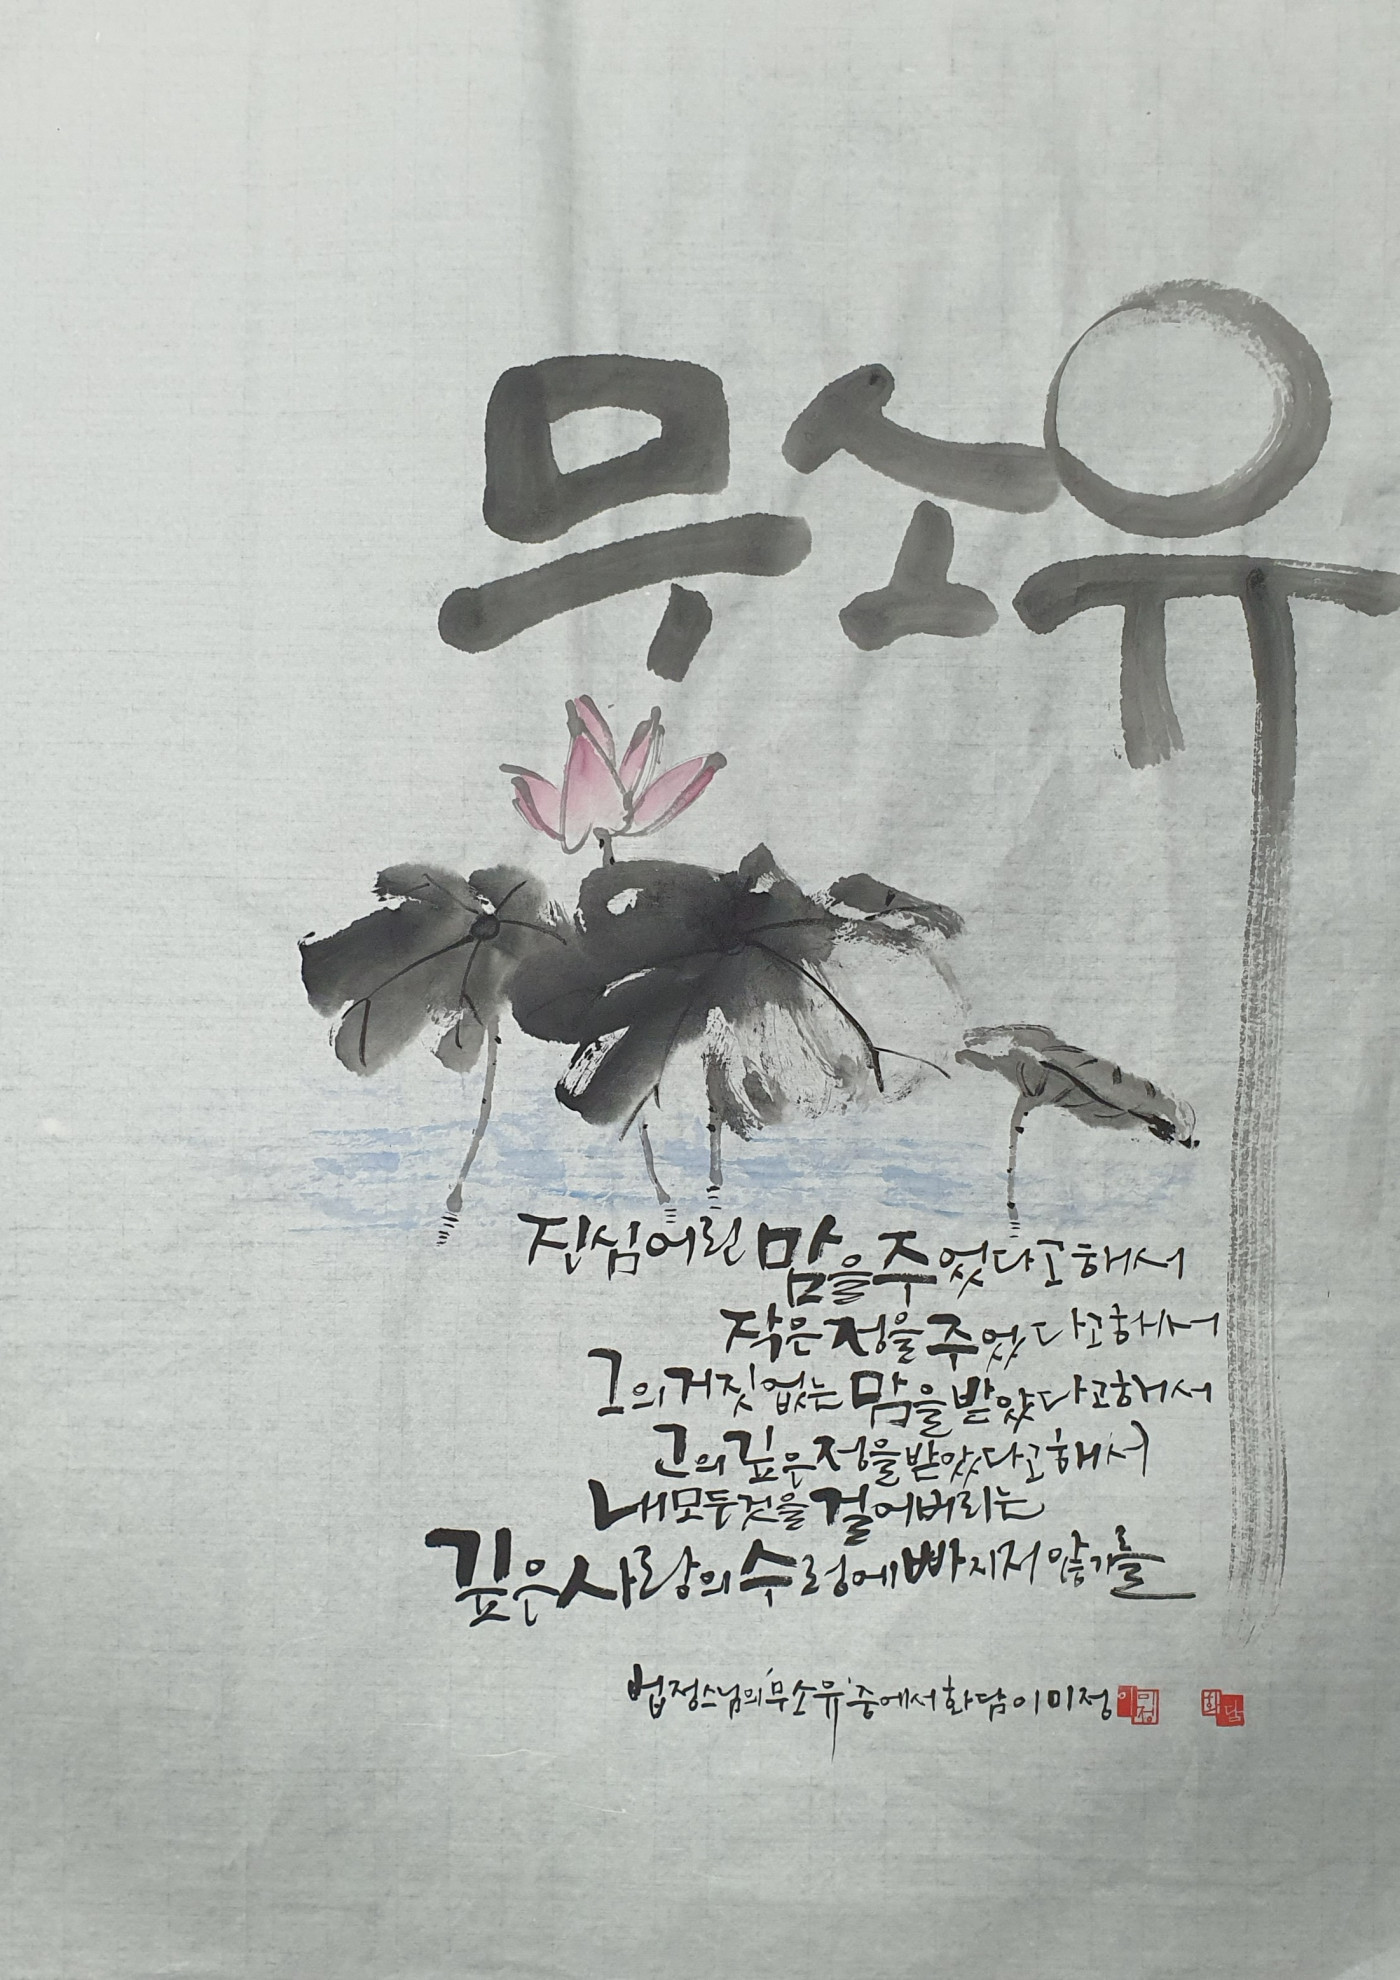 무소유
진심어린 맘을 주었다고 해서
작은 정을 주었다고 해서
그의 거짓없는 맘을 받았다고 해서
그의 깊은 정을 받았다고 해서
내 모든것을 걸어버리는
깊은 사랑의 수렁에 빠지지 않기를
법정스님의 '무소유' 중에서 화담 이미정
이미정
화담